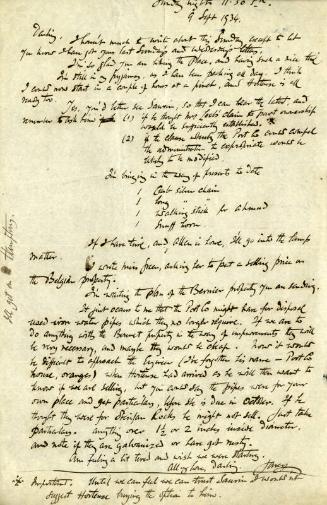 Sunday night 11.30 P.M.
9 Sept 1934.
Darling. I haven't much to write about this Sunday except to let
you know I have got your last Sunday's and Wednesday's letters.
I'm so glad you are liking the place, and having such a nice time
I'm still in my pyjamas, as I have been packing all day. I think
I could now start in a couple of hours at a pinch, and Hortense is all
ready too.
Yes, you'd better see Saurin, so that I can hear the latest, and
remember to ask him if (1) if he thought Mrs claim to part ownership
would be sufficiently established.
(2) if the clause whereby the Port Co could compel
the administration to expropriate would be
likely to be modified
I'm bringing in the way of presents to date
1 silver chain
1 long " "
1 walking stick for Ahmed
1 Snuff horn
If I have time, and Allen is here, I'll go into the lamp
matter.
I wrote Miss Green, asking her to put a selling price on
the Belgian property.
I'm waiting the plan of the Bernier property you are sending.
It just occurs to me that the Port Co might have for disposal
used iron water pipes which they no longer require. If we are to
do anything with the Bernet property in the way of improvements they will
be very necessary, and maybe they could be cheap. Now it would
be difficult to approach the (I've forgotten his name - Port Co
house, oranges) when Hortense had arrived as he will then want to
know if we are selling, but you could say the pipes were for your
own place and get particulars, before she is due in October. If he
thought they were for he might not sell. Just take
particulars. Anything over 1½ or 2 inches inside diameter.
and note if they are galvanized or have got rusty.
Am feeling a bit tired and wish we were starting.
All my love, darling
Important. Until we can feel we can trust Saurin I would not
suggest Hortense buying the option to him.
I'll get on Thursday.